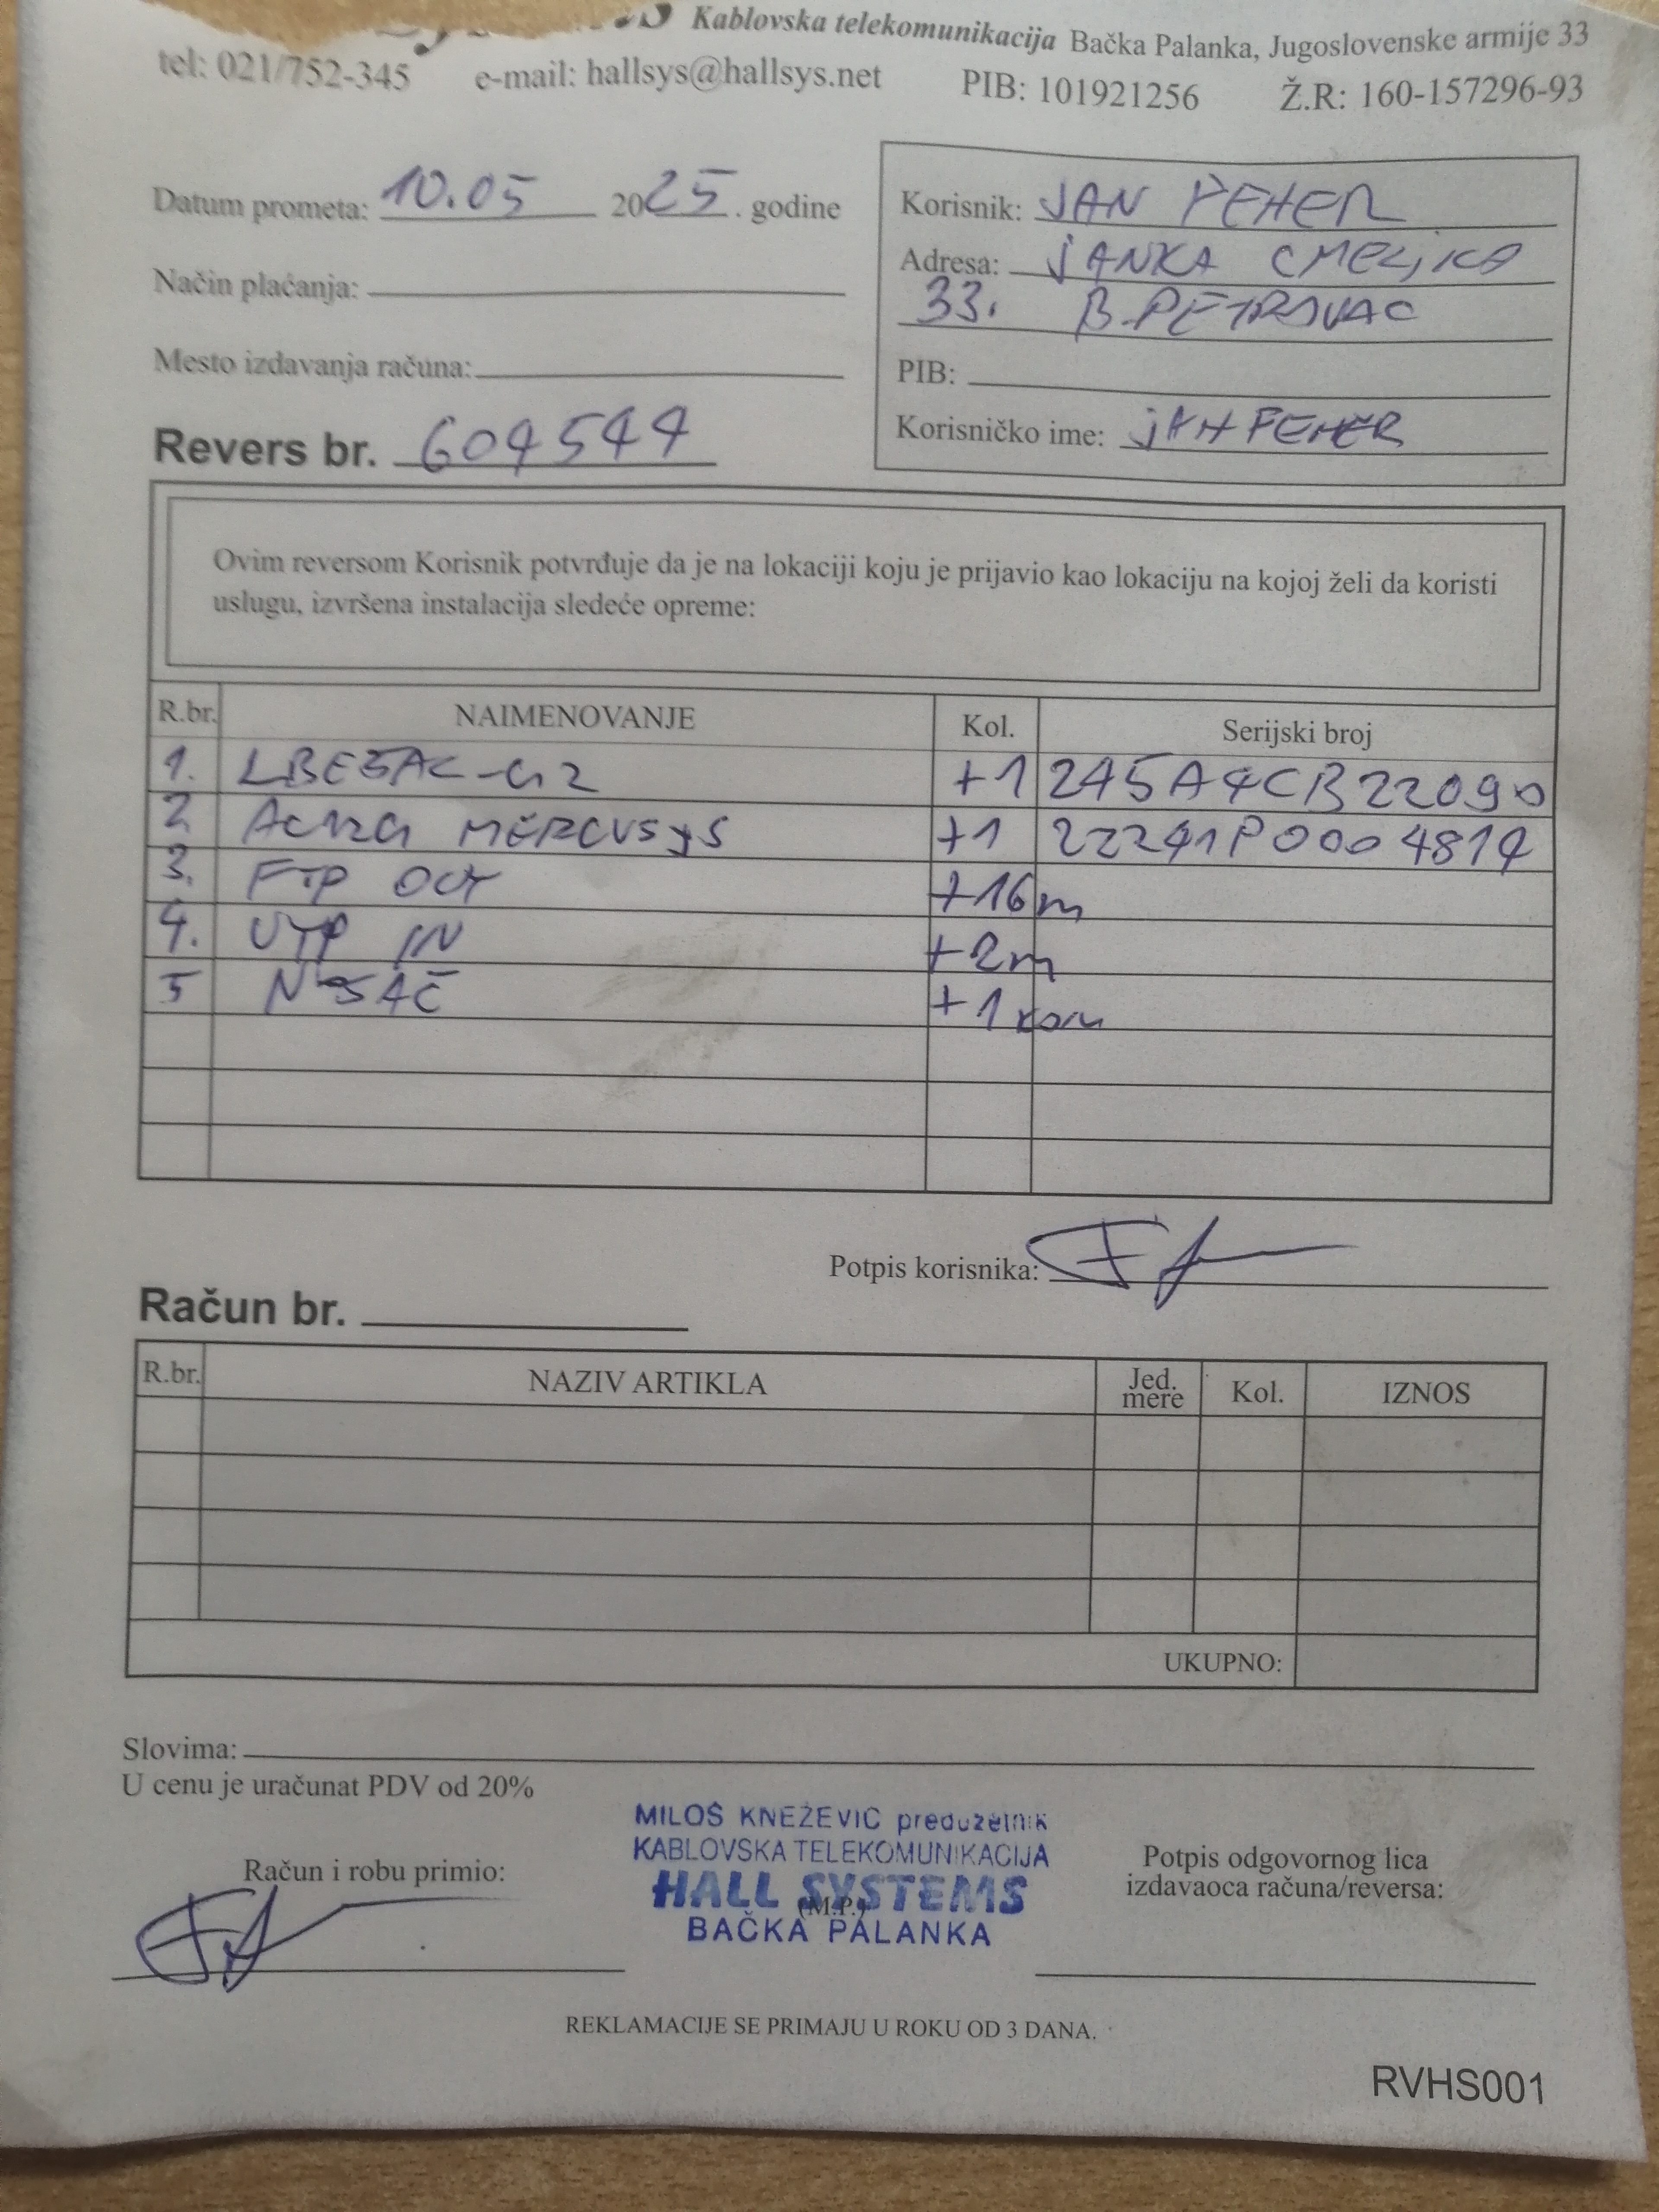 Kablovska telekomunikacija Bačka Palanka, Jugoslovenske armije 33
tel: 021/752-345 e-mail: hallsys@hallsys.net PIB: 101921256 Ž.R: 160-157296-93
Datum prometa: 10.05 2025. godine
Način plaćanja:
Mesto izdavanja računa:
Revers br. 604544
Korisnik: JAN FEHER
Adresa: JANKA CMELJKA
33. B.PETROVAC
PIB:
Korisničko ime: JAN FEHER
Ovim reversom Korisnik potvrđuje da je na lokaciji koju je prijavio kao lokaciju na kojoj želi da koristi
uslugu, izvršena instalacija sledeće opreme:
R.br. NAIMENOVANJE Kol. Serijski broj
1. LBE5AC-G2 +1 245A4CB22090
2 AC12G MERCUSYS +1 22241P0004814
3. FTP OUT +16m
4. UTP IN +2m
5 NOSAČ +1 kom
Potpis korisnika:
Račun br.
R.br. NAZIV ARTIKLA Jed. mere Kol. IZNOS
UKUPNO:
Slovima:
U cenu je uračunat PDV od 20%
MILOŠ KNEŽEVIĆ preduzetnik
KABLOVSKA TELEKOMUNIKACIJA
HALL SYSTEMS
(M.P.)
BAČKA PALANKA
Račun i robu primio:
Potpis odgovornog lica
izdavaoca računa/reversa:
REKLAMACIJE SE PRIMAJU U ROKU OD 3 DANA.
RVHS001